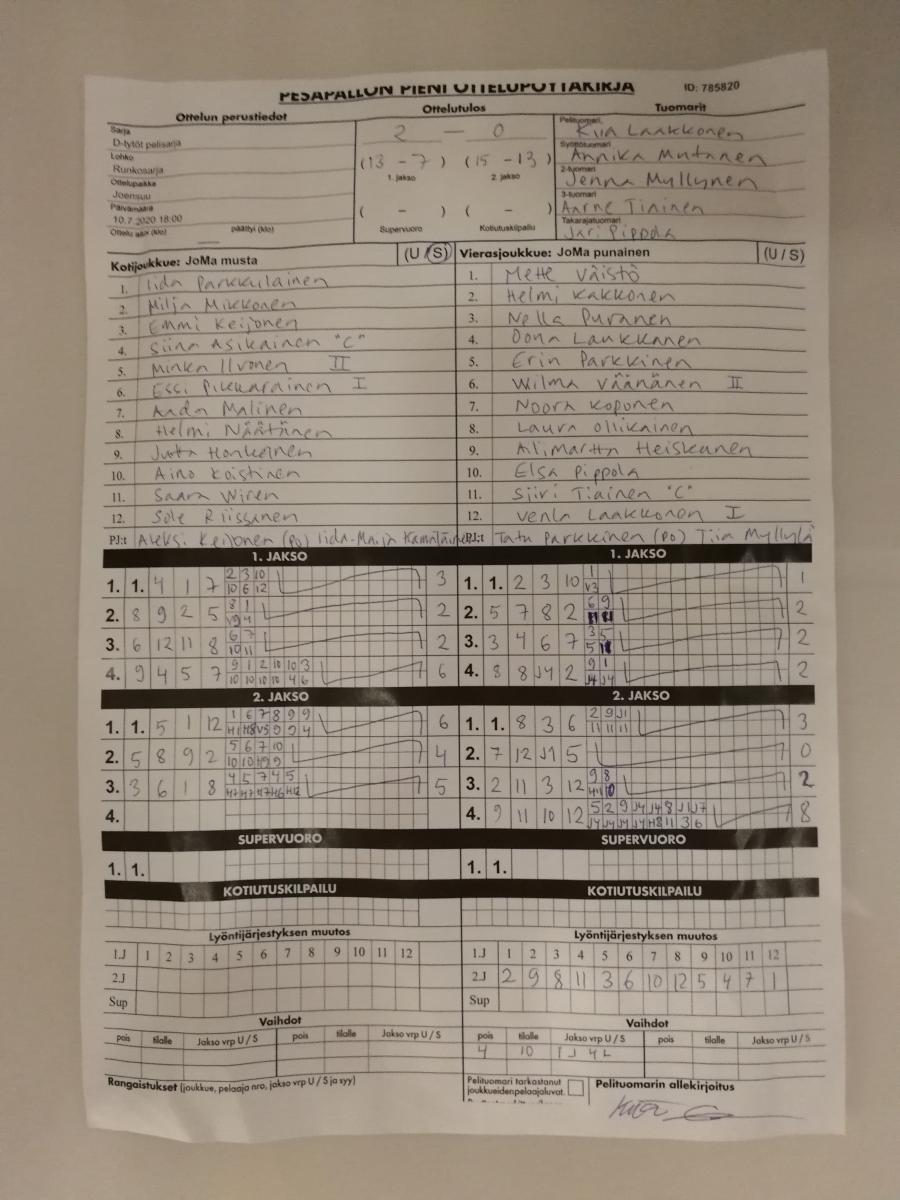 PESÄPALLON PIENI OTTELUPÖYTÄKIRJA ID: 785820
Ottelun perustiedot Ottelutulos Tuomarit
Sarja
D-tytöt pelisarja
Lohko
Runkosarja
Ottelupaikka
Joensuu
Päivämäärä
10.7.2020 18:00
Ottelu alkoi (klo) päättyi (klo)
2 - 0
(13 - 7) (15 - 13)
1. jakso 2. jakso
( - ) ( - )
Supervuoro Kotiutuskilpailu
Pelituomari
Kiia Laakkonen
Syöttötuomari
Annika Mutanen
2-tuomari
Jenna Myllynen
3-tuomari
Aarne Tiainen
Takarajatuomari
Jari Pippola
Kotijoukkue: JoMa musta (U / S)
1. Iida Parkkulainen
2. Milja Mikkonen
3. Emmi Keijonen
4. Siina Asikainen "C"
5. Minka Ilvonen II
6. Essi Pikkarainen I
7. Aada Malinen
8. Helmi Näätänen
9. Jutta Honkanen
10. Aino Koistinen
11. Saara Wiren
12. Sole Riissanen
PJ:t Aleksi Keijonen (PO) Iida-Maija
Vierasjoukkue: JoMa punainen (U / S)
1. Mette Väistö
2. Helmi Kakkonen
3. Nella Puranen
4. Oona Laukkanen
5. Erin Parkkinen
6. Wilma Väänänen II
7. Noora Koponen
8. Laura Ollikainen
9. Ailimartta Heiskanen
10. Elsa Pippola
11. Siiri Tiainen "C"
12. Venla Laakkonen I
PJ:t Tatu Parkkinen (PO) Tiia Myllylä
1. JAKSO
1. 1. 4 1 7 2 3 10 3
10 6 12
2. 8 9 2 5 8 1 2
V9 4
3. 6 12 11 8 6 7 2
10 11
4. 9 4 5 7 9 1 2 10 10 3 6
10 10 10 10 4 6
2. JAKSO
1. 1. 5 1 12 1 6 7 8 9 9 6
2. 5 8 9 2 5 6 7 10 4
3. 3 6 1 8 4 5 7 4 5 5
4.
SUPERVUORO
1. 1.
KOTIUTUSKILPAILU
1. JAKSO
1. 1. 2 3 10 1 1
V3
2. 5 7 8 2 6 9 2
3. 3 4 6 7 3 5 2
4. 8 8 J4 2 9 1 2
J4 J4
2. JAKSO
1. 1. 8 3 6 2 9 J1 3
11 11 11
2. 7 12 J1 5 0
3. 2 11 3 12 9 8 2
4. 9 11 10 12 5 2 9 J4 J4 8 J1 J7 8
J4 J4 J4 J4 H8 11 3 6
SUPERVUORO
1. 1.
KOTIUTUSKILPAILU
Lyöntijärjestyksen muutos
1.J 1 2 3 4 5 6 7 8 9 10 11 12
2.J
Sup
Vaihdot
pois tilalle Jakso vrp U / S pois tilalle Jakso vrp U / S
Rangaistukset (joukkue, pelaaja nro, jakso vrp U / S ja syy)
Lyöntijärjestyksen muutos
1.J 1 2 3 4 5 6 7 8 9 10 11 12
2.J 2 9 8 11 3 6 10 12 5 4 7 1
Sup
Vaihdot
pois tilalle Jakso vrp U / S pois tilalle Jakso vrp U / S
4 10 1J 4L
Pelituomari tarkastanut
joukkueiden pelaajaluvat.
Pelituomarin allekirjoitus